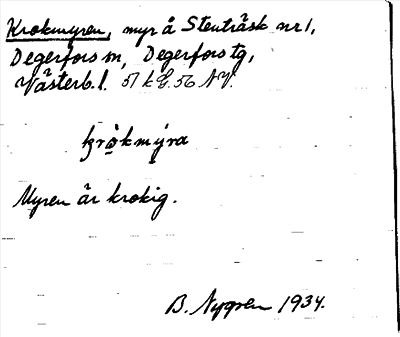 Krokmyren, myr å Stenträsk nr 1,
Degerfors sn, Degerfors tg,
Västerb. l. 51 k G. 56 NV.
kròkmýra
Myren är krokig.
B. Nygren 1934.